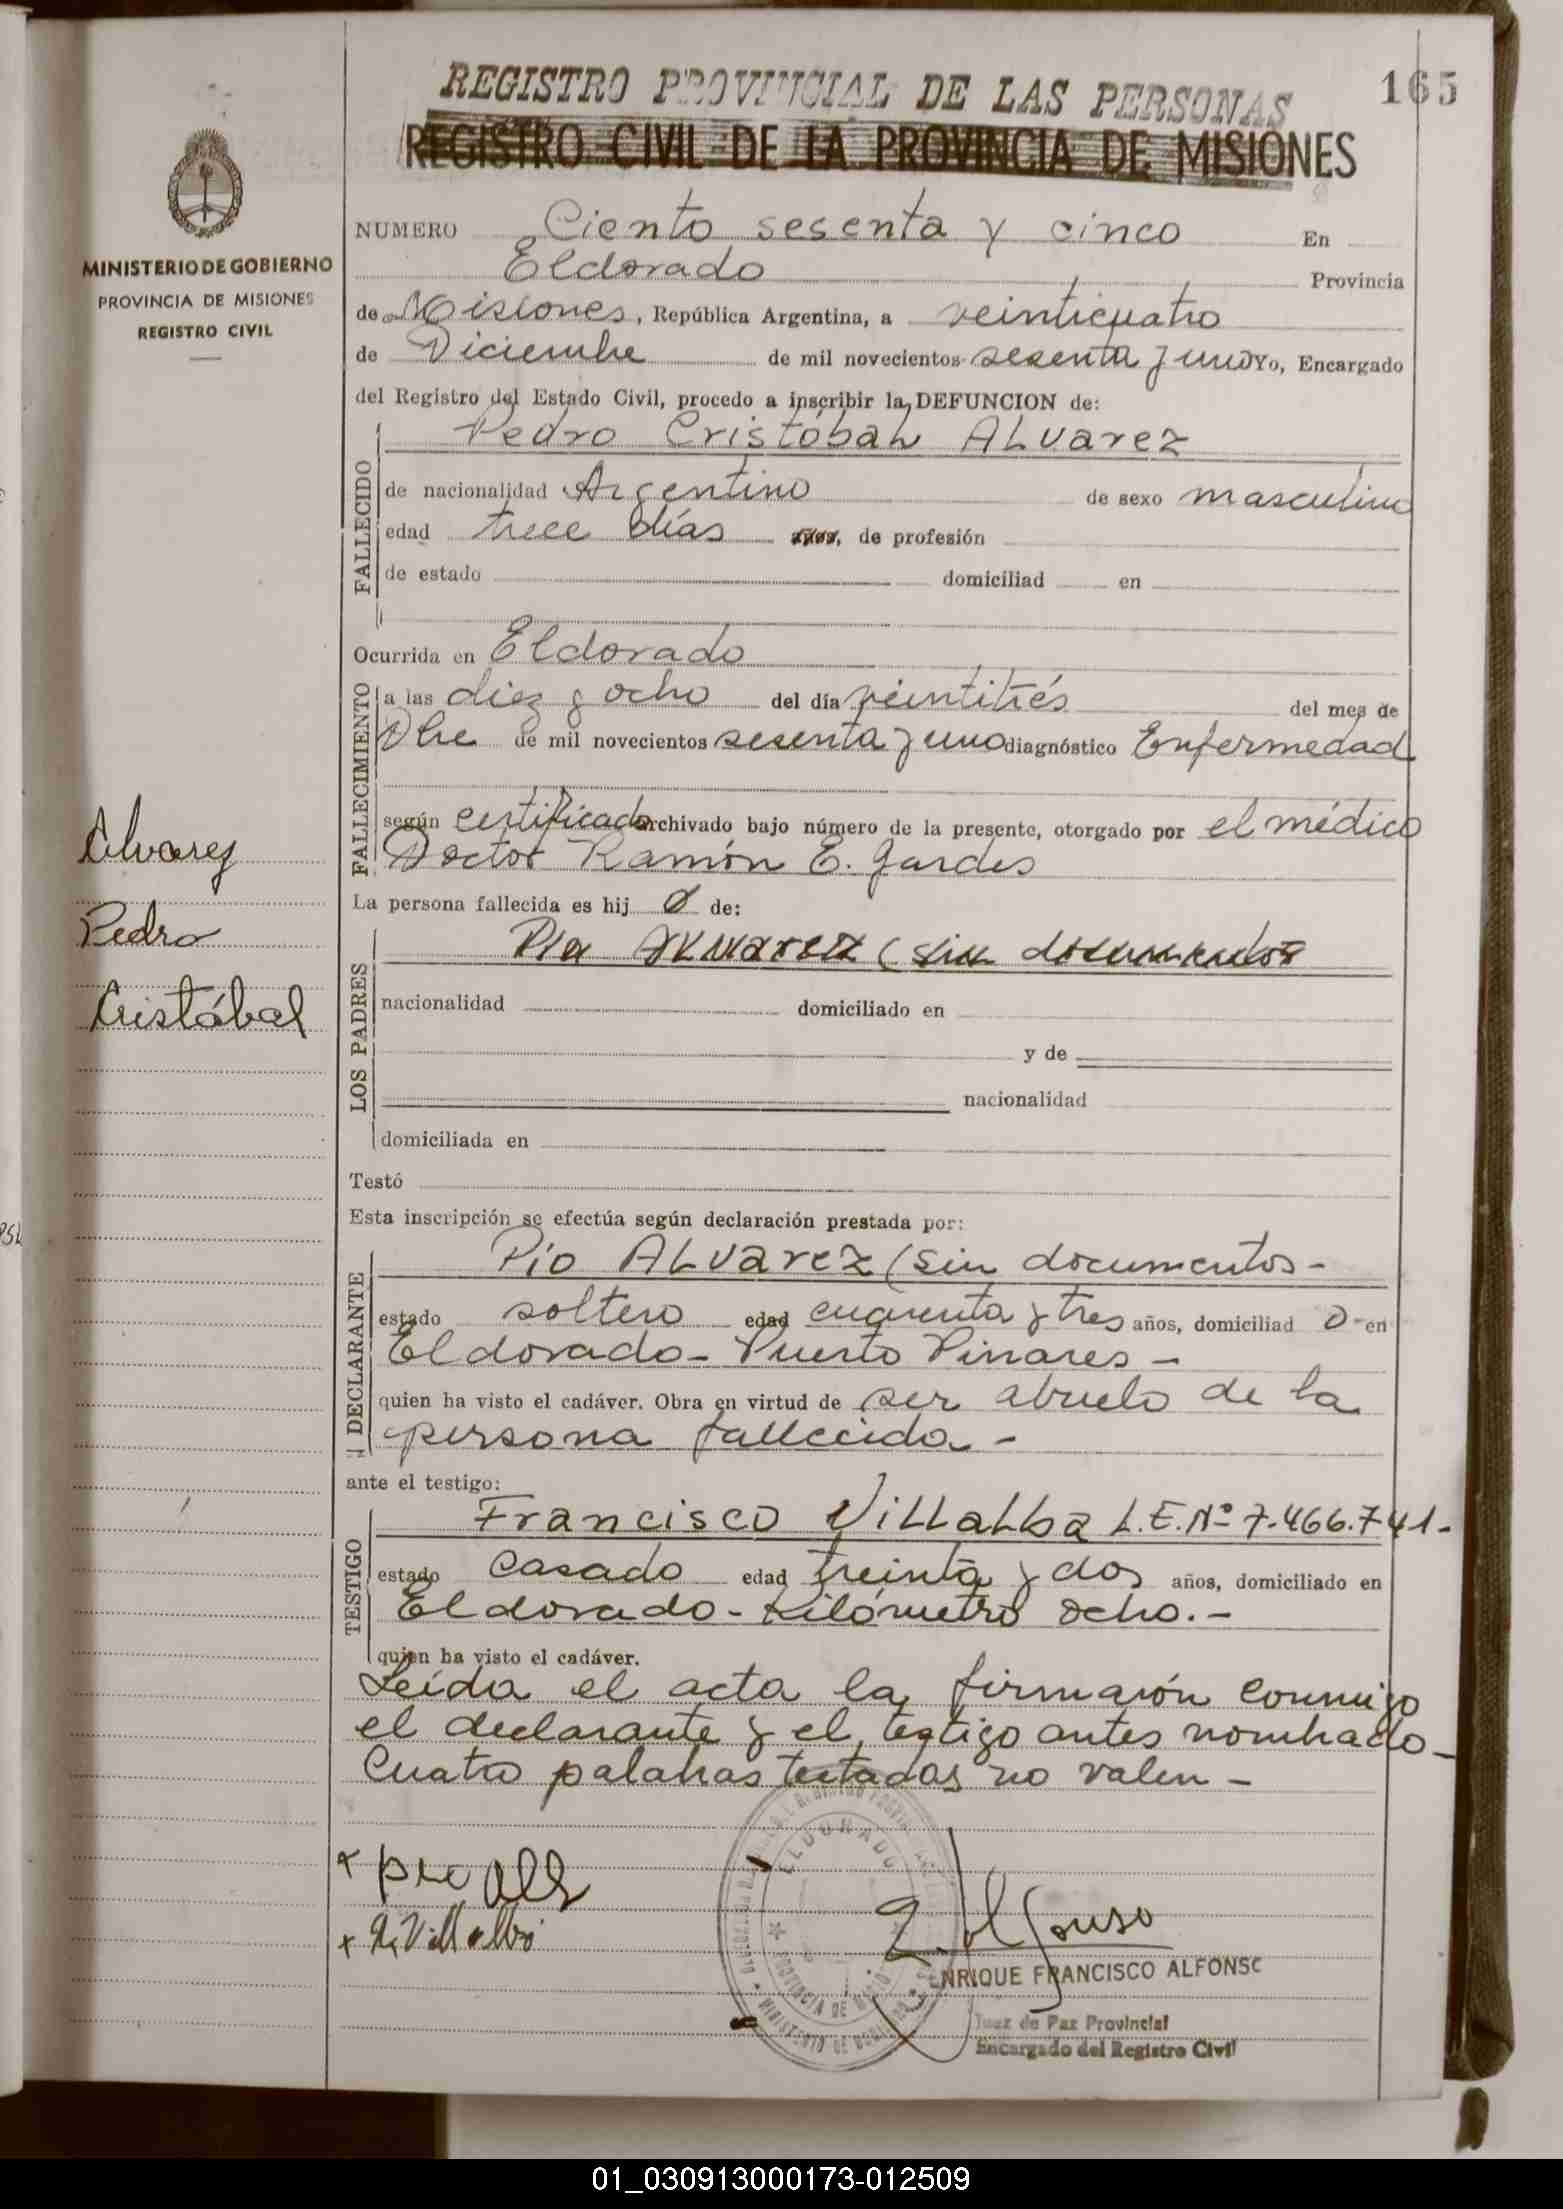 REGISTRO PROVINCIAL DE LAS PERSONAS
165
REGISTRO CIVIL DE LA PROVINCIA DE MISIONES
MINISTERIO DE GOBIERNO
PROVINCIA DE MISIONES
REGISTRO CIVIL
NUMERO Ciento sesenta y cinco En
Eldorado Provincia
de Misiones, República Argentina, a veinticuatro
de Diciembre de mil novecientos sesenta y uno Yo, Encargado
del Registro del Estado Civil, procedo a inscribir la DEFUNCION de:
FALLECIDO
Pedro Cristóbal ALvarez
de nacionalidad Argentino de sexo masculino
edad trece días años, de profesión
de estado domiciliad en
Ocurrida en Eldorado
FALLECIMIENTO
a las diez y ocho del día veintitrés del mes de
Dbre de mil novecientos sesenta y uno diagnóstico Enfermedad
según certificado archivado bajo número de la presente, otorgado por el médico
Doctor Ramón E. Gardes
La persona fallecida es hij o de:
Alvarez
Pedro
Cristóbal
LOS PADRES
Pío ALvarez (sin documentos
nacionalidad domiciliado en
y de
nacionalidad
domiciliada en
Testó
Esta inscripción se efectúa según declaración prestada por:
DECLARANTE
Pío ALvarez (sin documentos-
estado soltero edad cuarenta y tres años, domiciliad o en
Eldorado- Puerto Pinares-
quien ha visto el cadáver. Obra en virtud de ser abuelo de la
persona fallecida-
ante el testigo:
TESTIGO
Francisco ViLLaLba L.E.Nº 7.466.741-
estado casado edad treinta y dos años, domiciliado en
Eldorado-Kilómetro ocho.-
quien ha visto el cadáver.
Leída el acta la firmarón conmigo
el declarante y el testigo antes nombrado-
Cuatro palabras testadas no valen-
+ pio
+ Villalba
ELDORADO
PROVINCIA DE
MINISTERIO DE GOBIERNO
E. Alfonso
ENRIQUE FRANCISCO ALFONSO
Juez de Paz Provincial
Encargado del Registro Civil
01_030913000173-012509